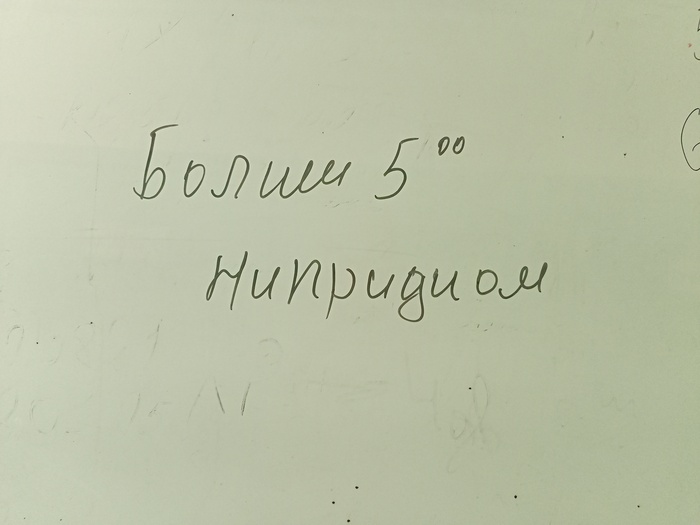 Болши 5⁰⁰
Нипридиом